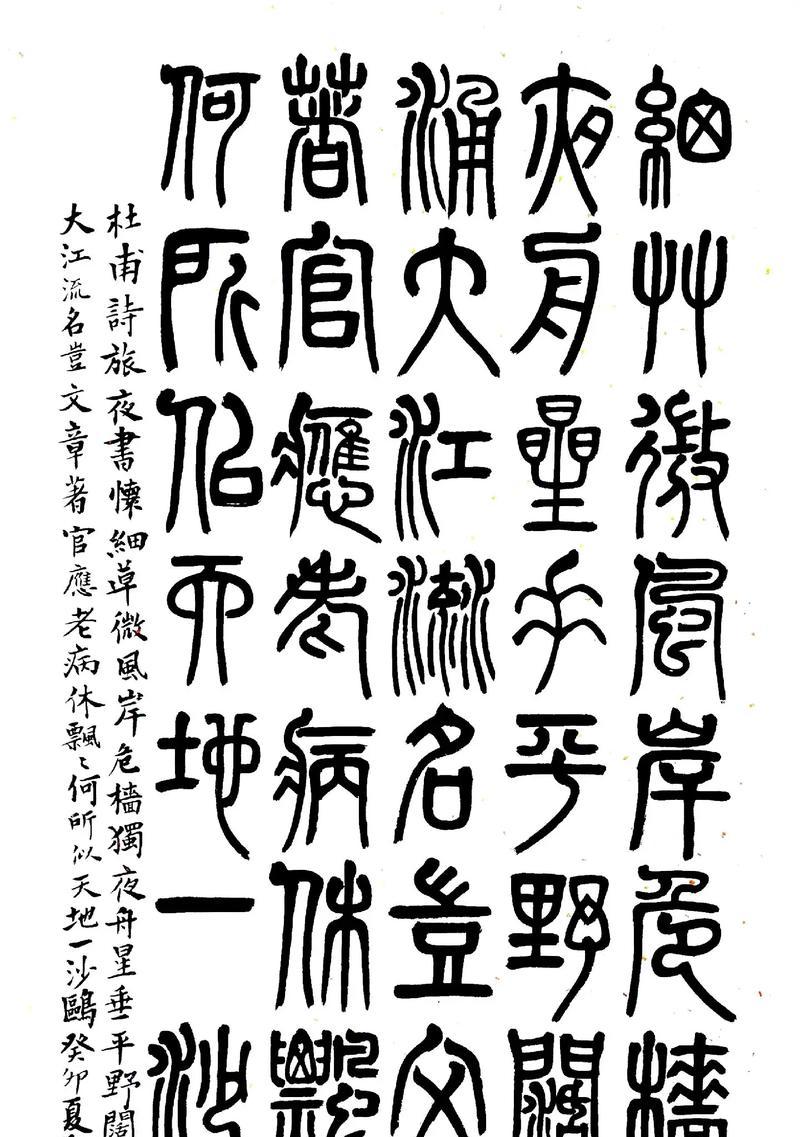 細草微風岸危檣
夜舟星垂平野闊
涌大江流名豈文
著官應老病休飄
何所似天地一沙
杜甫詩旅夜書懷細草微風岸危檣獨夜舟星垂平野闊
大江流名豈文章著官應老病休飄〻何所似天地一沙鷗癸卯夏